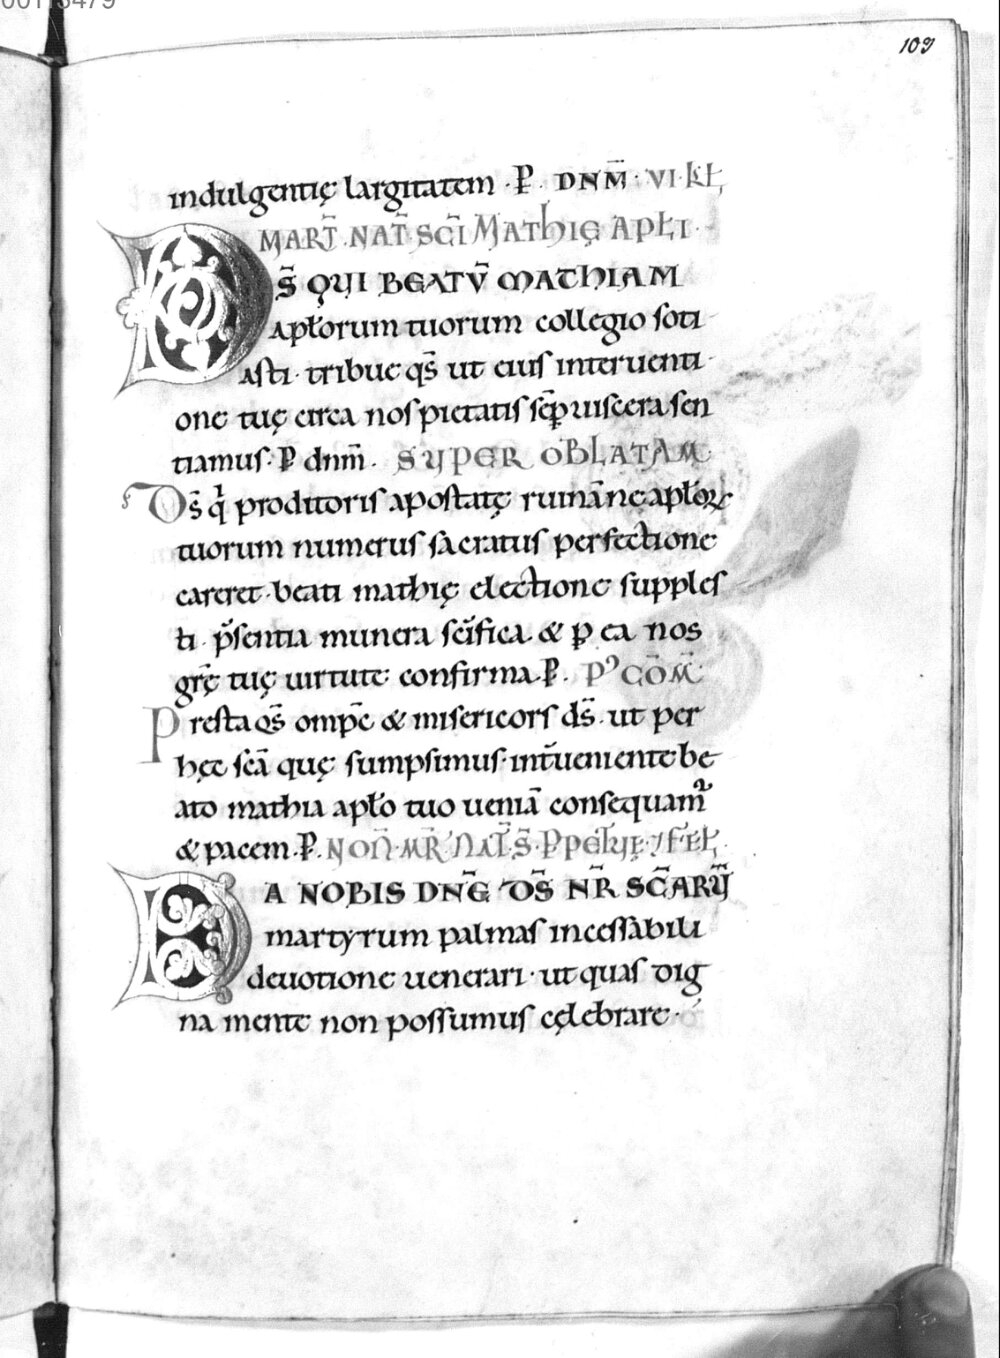 00113479
109
indulgentię largitatem · P · DNM̄ · VI · KŁ
MART̄ · NAT̄ · SC̄I MAThIĘ APŁI ·
DS̄ QUI BEATŪ MAThIAM
apłorum tuorum collegio soti
asti · tribue qs̄ ut eius interuenti
one tuę circa nos pietatis sēp uiscera sen
tiamus · P dnm̄ · SUPER OBLATAM
Ds̄ q̄ proditoris apostatę ruinā ne apłoꝝ
tuorum numerus sacratus perfectione
careret · beati mathię electione supples
ti · p̄sentia munera sc̄ifica · & ꝑ ea nos
gr̄ę tuę uirtute confirma · P · P' COM̄
Presta qs̄ omp̄c & misericors ds̄ · ut per
hęc sc̄a quę sumpsimus · int̄ueniente be
ato mathia apło tuo ueniā consequam᷑
& pacem · P · NON̄ · MR̄ · NAT̄ · S̄ · PPETUĘ · 7 FEŁ
DA NOBIS DN̄E DS̄ NR̄ SC̄ARŪ
martyrum palmas incessabili
deuotione uenerari · ut quas dig
na mente non possumus cęlebrare ·